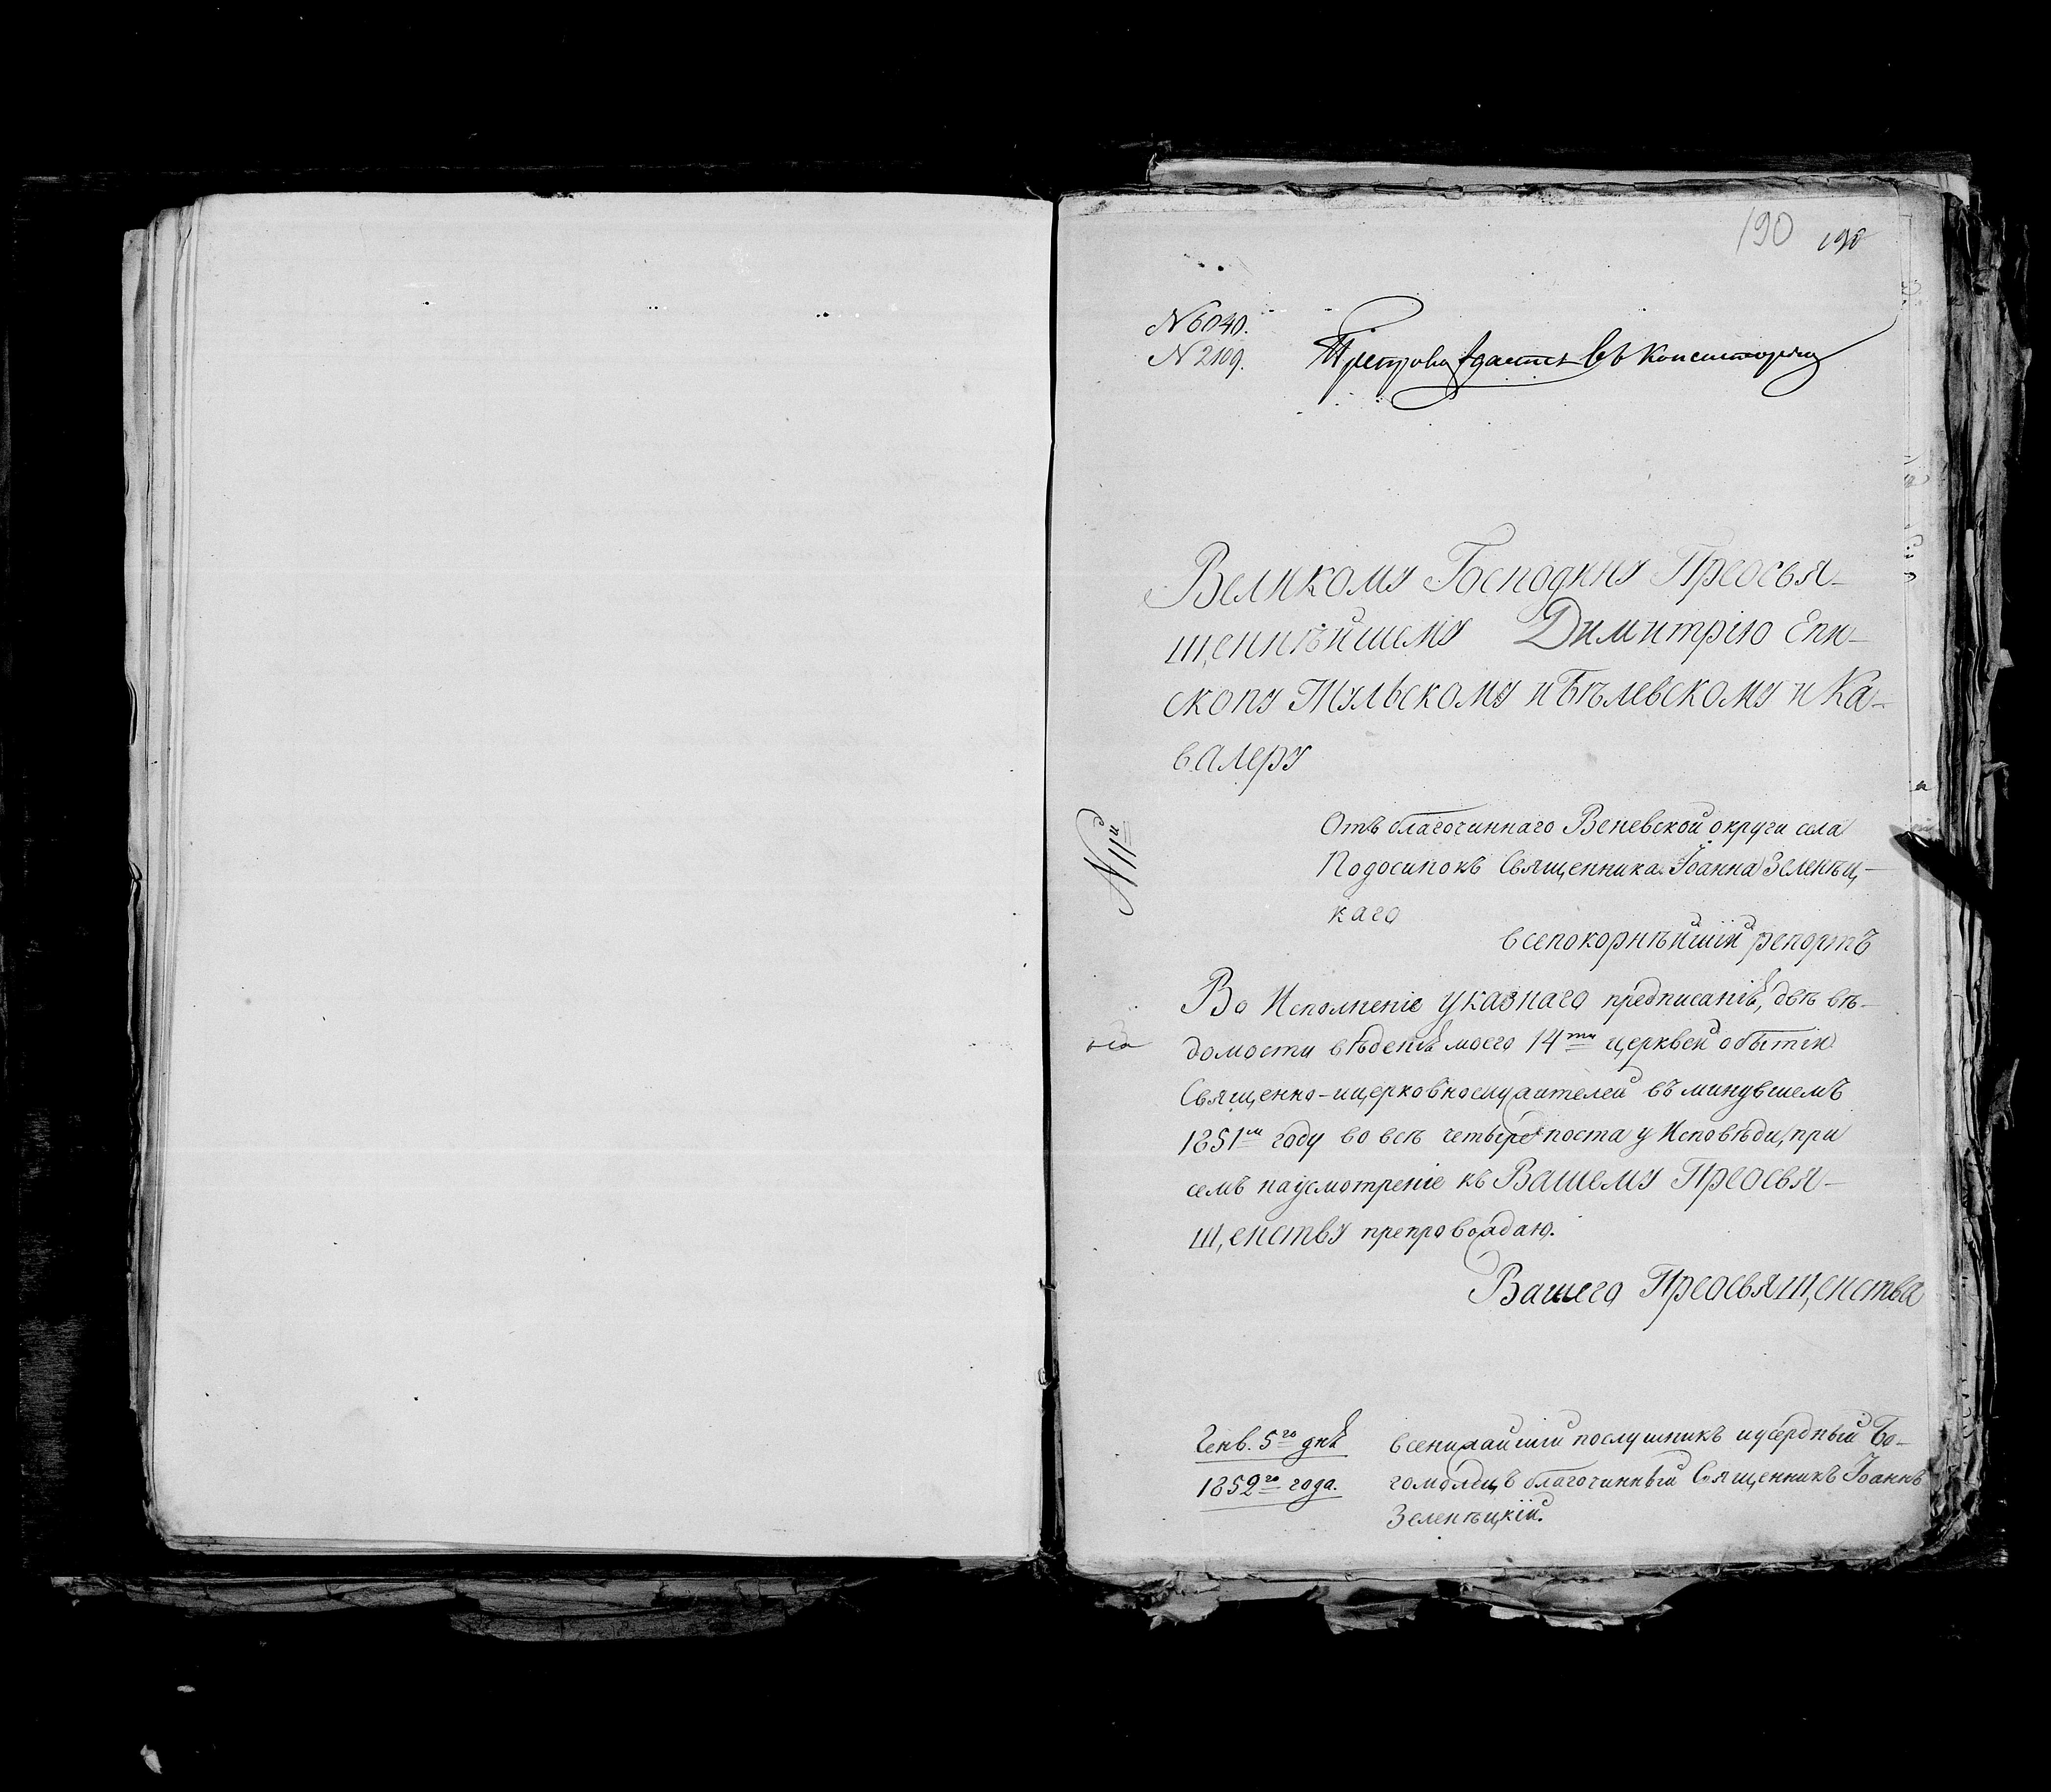 190 190
N 6040.
N 2109.
Препровождается въ Консисторію
Великому Господину Преосвя-
щеннѣйшему Димитрію Епи-
скопу Тульскому и Бѣлевскому и Ка-
валеру
N 11й
Отъ благочиннаго Веневской округи села
Подосинокъ Священника Іоанна Зеленѣц-
каго
всепокорнѣйшій репортъ
Во Исполненіе указнаго предписанія, двѣ вѣ-
домости вѣденія моего 14ти церквей о бытіи
Священно-и церковнослужителей въ минувшемъ
1851м году во всѣ четыре поста у Исповѣди, при
семъ на усмотреніе къ Вашему Преосвя-
щенству препровождаю.
Вашего Преосвященства
Генв. 5го дня
1852го года.
всенижайшій послушникъ и усердный Бо-
гомолецъ благочинный Священникъ Іоаннъ
Зеленѣцкій.